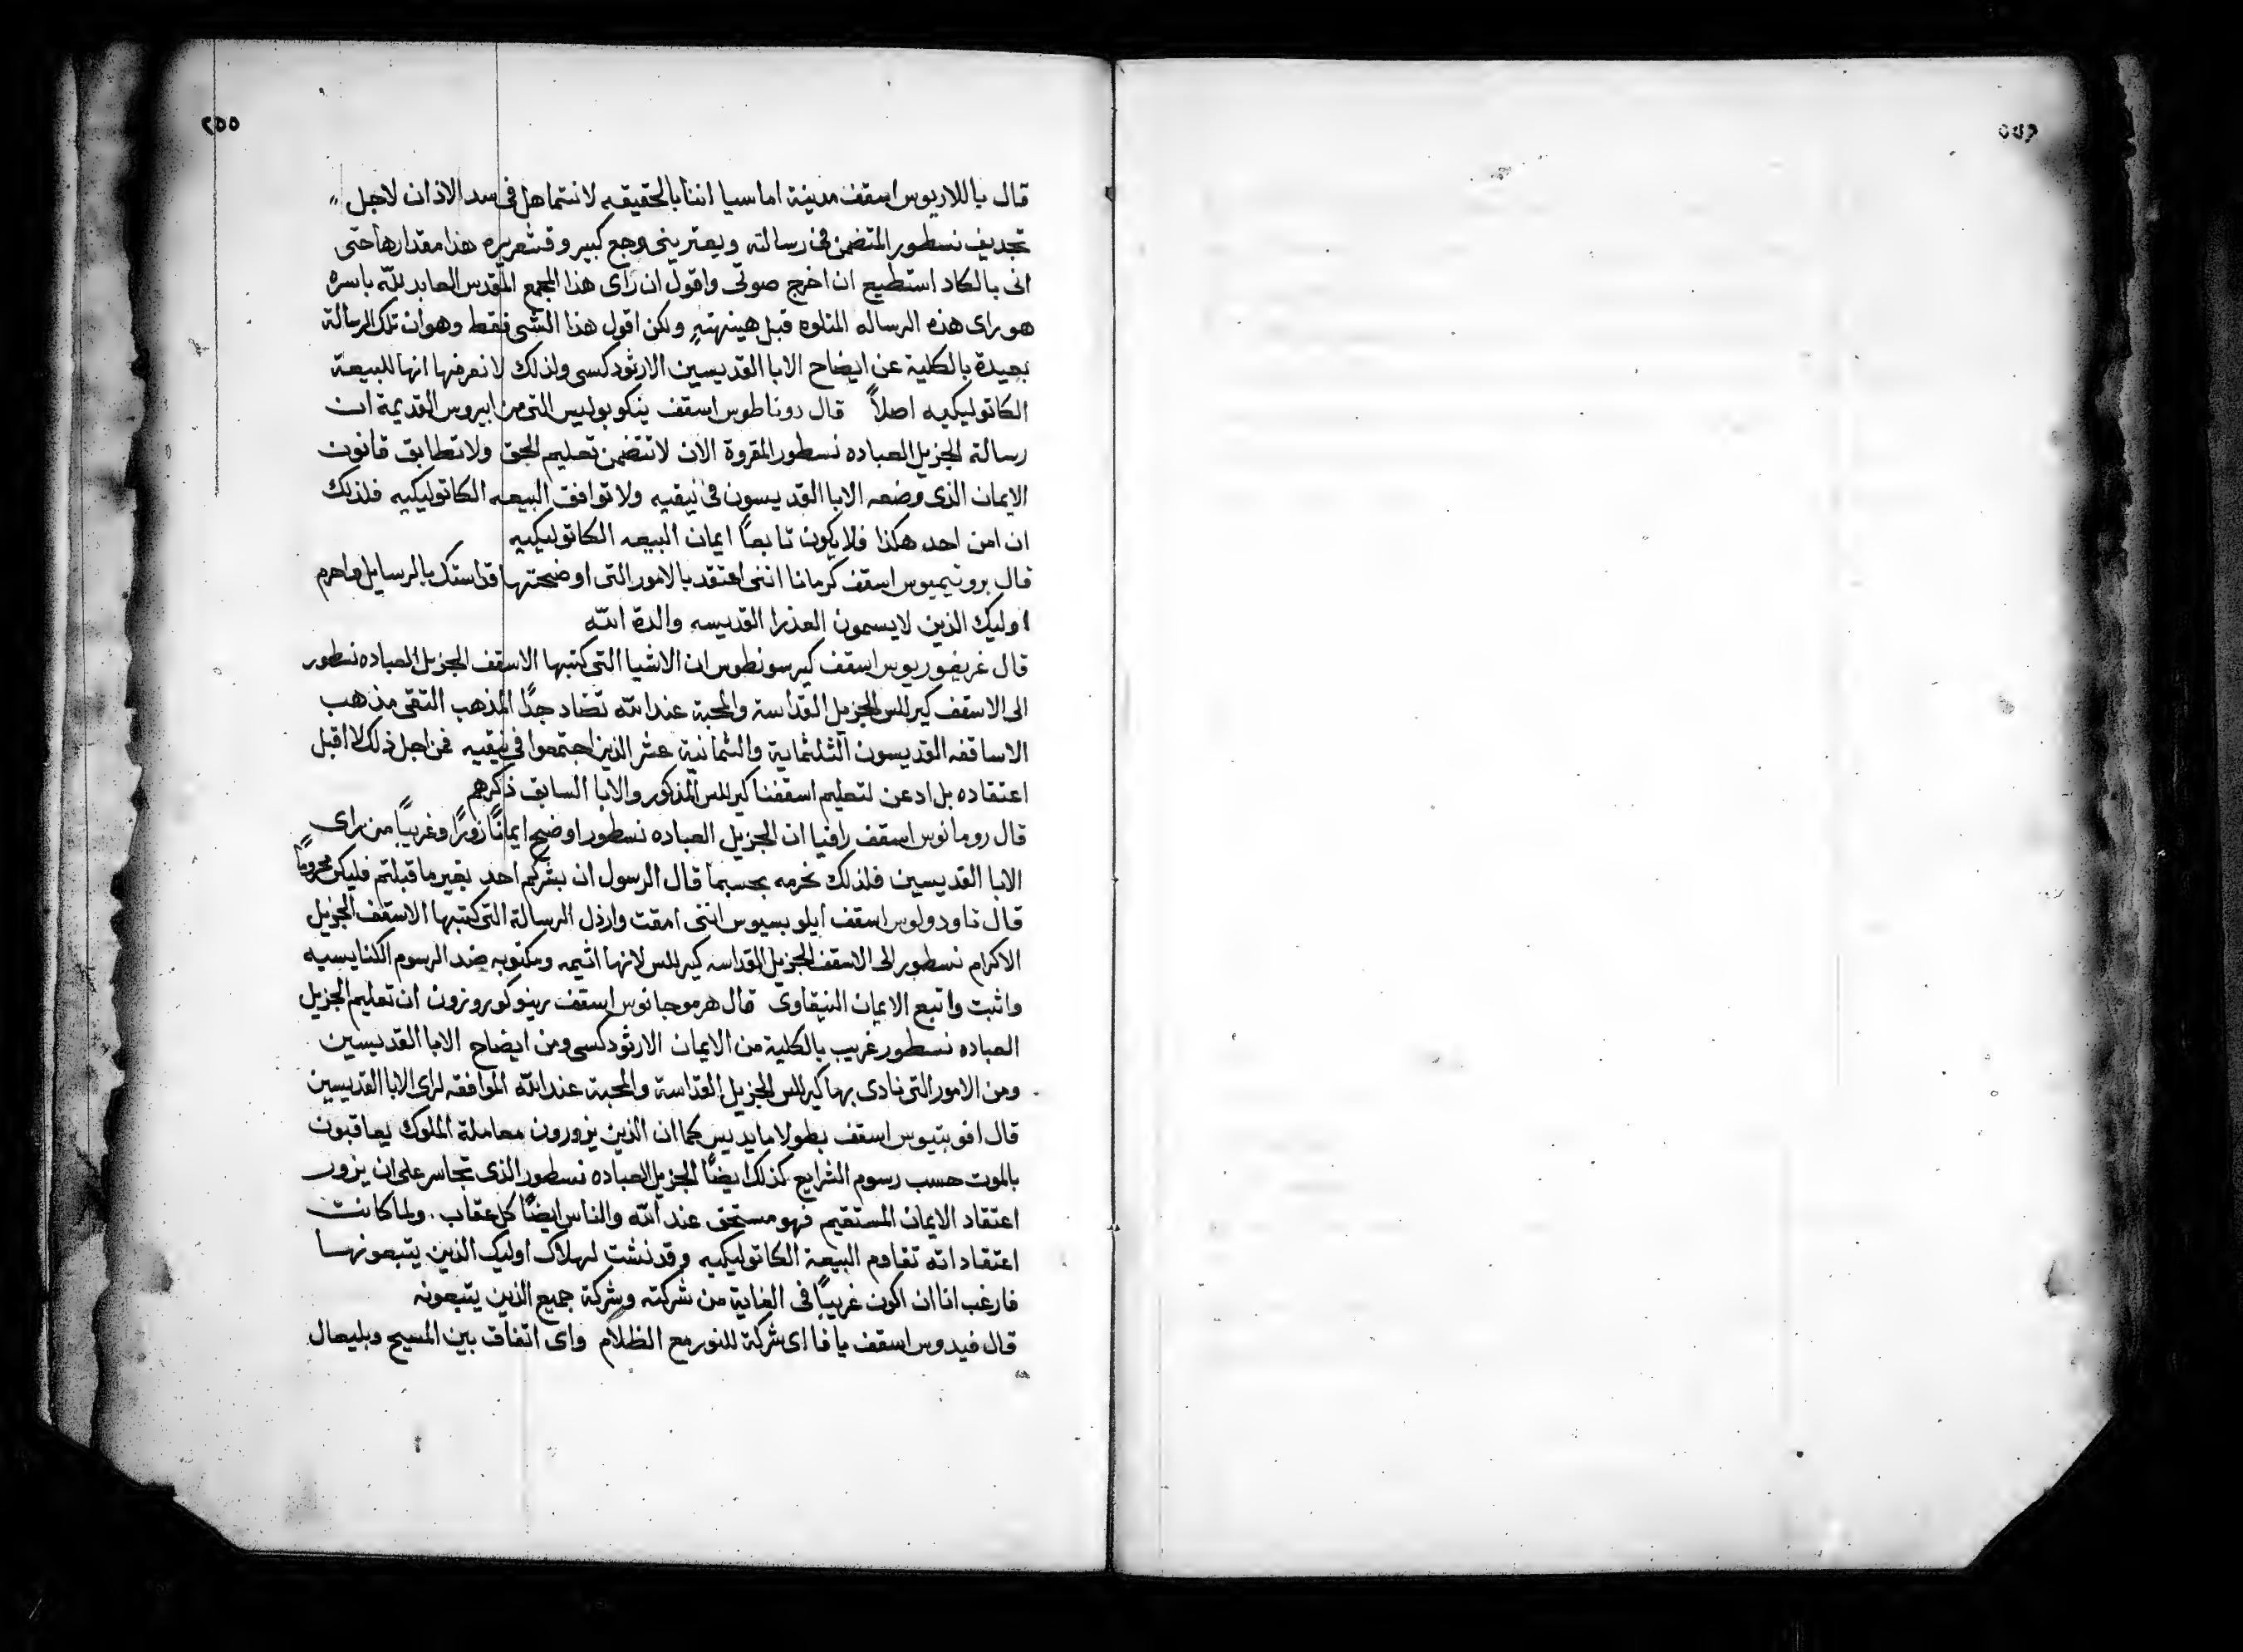 ٢٥٥
قال باللاديوس اسقف مدينة اماسيا اننا بالحقيقه لا نتماهل في سد الاذان لاجل
تجديف نسطور المتضمن في رسالته ويعتريني وجع كبير وقشعريره هذا مقدارها حتى
اني بالكاد استطيع ان اخرج صوتي واقول ان راى هذا المجمع المقدس العابد لله باسره
هو راى هذه الرساله المتلوه قبل هينهتهٍ ولكن اقول هذا الشي فقط وهو ان تلك الرسالة
بعيدة بالكلية عن ايضاح الابا القديسين الارثودكسى ولذلك لا نعرفها انها للبيعة
الكاتوليكيه اصلاً قال دوناطوس اسقف ينكوبوليس التي من ابيروس القديمة ان
رسالة الجزيل العباده نسطور المقروة الان لا تتضمن تعليم الحق ولا تطابق قانون
الايمان الذي وضعه الابا القديسون في نيقيه ولا توافق البيعه الكاتوليكيه فلذلك
ان امن احد هكذا فلا يكون تابعاً ايمان البيعه الكاتوليكيه
قال بروتيميوس اسقف كرمانا انني اعتقد بالامور التي اوضحتها قداستك بالرسايل واحرم
اوليك الذين لا يسمون العذرا القديسه والدة الله
قال غريغوريوس اسقف كيرسونطوس ان الاشيا التي كتبها الاسقف الجزيل العباده نسطور
الى الاسقف كيرللس الجزيل القداسة والمحبة عند الله تضاد جدًا المذهب التقى مذهب
الاساقفه القديسون الثلثماية والثمانية عشر الذين اجتمعوا في نيقيه فمن اجل ذلك لا اقبل
اعتقاده بل ادعن لتعليم اسقفنا كيرللس المذكور والابا السابق ذكرهم
قال رومانوس اسقف رافيا ان الجزيل العباده نسطور اوضح ايمانًا زورًا وغريبًا من راى
الابا القديسين فلذلك نحرمه بحسبما قال الرسول ان بشركم احد بغير ما قبلتم فليكن محرومًا
قال تاودولوس اسقف ايلوبسيوس انني امقت وارذل الرسالة التي كتبها الاسقف الجزيل
الاكرام نسطور الى الاسقف الجزيل القداسه كيرللس لانها اثيمه ومكتوبه ضد الرسوم الكنايسيه
واثبت واتبع الايمان النيقاوي قال هرموجانوس اسقف رينوكوروزون ان تعليم الجزيل
العباده نسطور غريب بالكلية من الايمان الارثودكسى ومن ايضاح الابا القديسين
ومن الامور التي نادى بها كيرللس الجزيل القداسة والمحبة عند الله الموافقه لراى الابا القديسين
قال افوبتيوس اسقف بطولامايديس كما ان الذين يزورون معاملة الملوك يعاقبون
بالموت حسب رسوم الشرايع كذلك ايضًا الجزيل العباده نسطور الذي تجاسر على ان يزور
اعتقاد الايمان المستقيم فهو مستحق عند الله والناس ايضًا كل عقاب. ولما كانت
اعتقاداته تقاوم البيعة الكاتوليكيه وقد نشت لهلاك اوليك الذين يتبعونها
فارغب انا ان اكون غريبًا في الغاية من شركته وشركة جميع الذين يتبعونه
قال فيدوس اسقف يافا اى شركة للنور مع الظلام واى اتفاق بين المسيح وبليعال